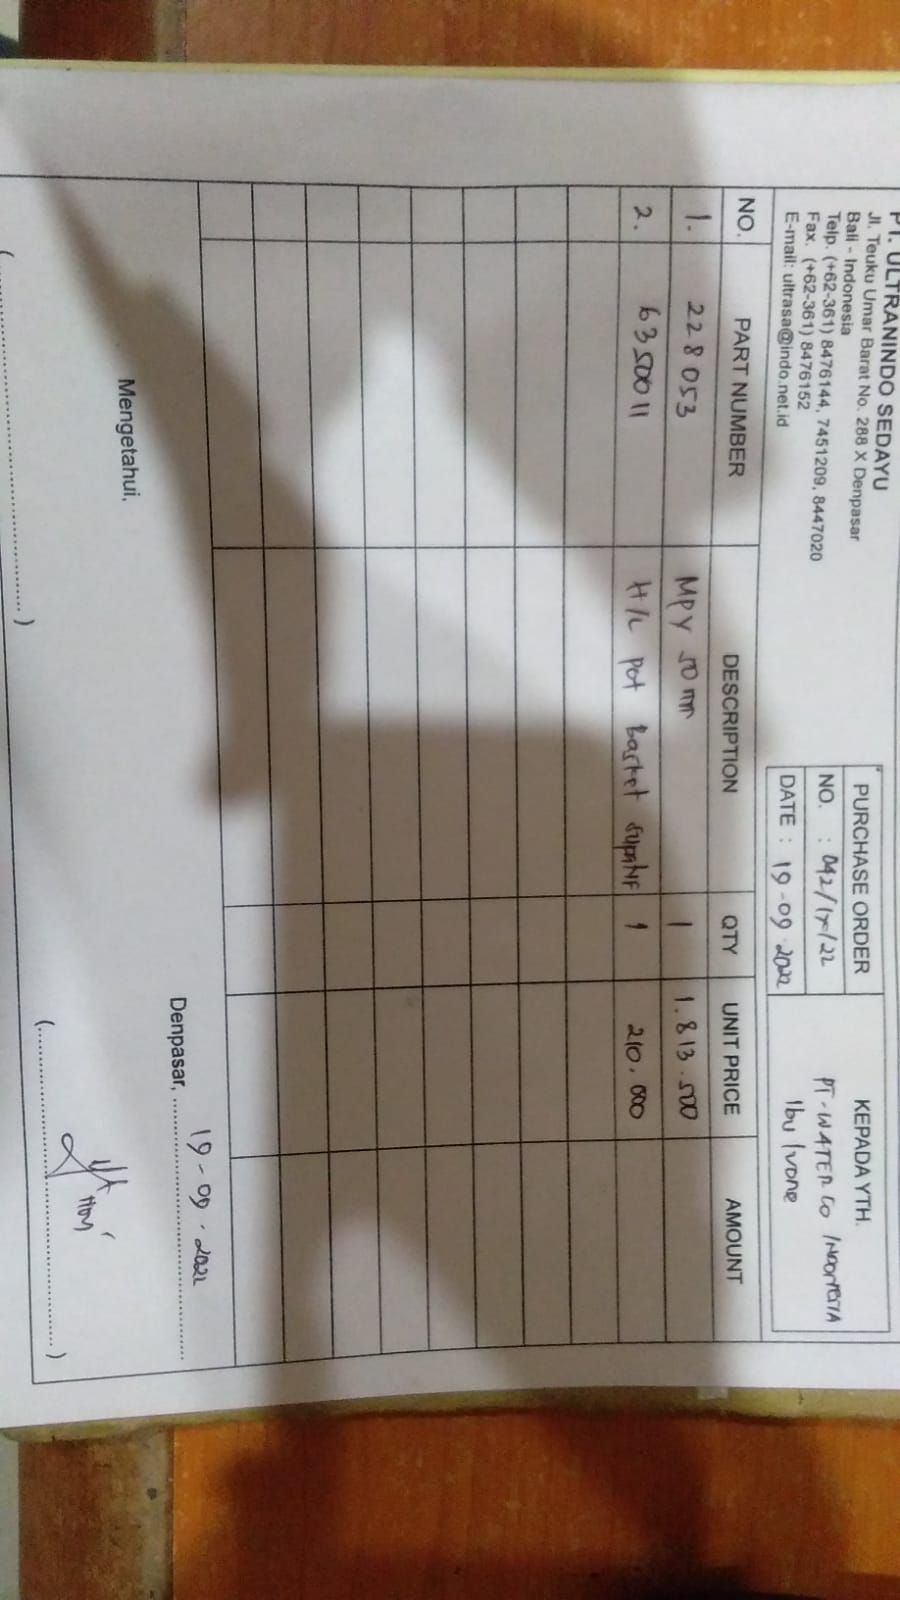 PT. ULTRANINDO SEDAYU
Jl. Teuku Umar Barat No. 288 X Denpasar
Bali - Indonesia
Telp. (+62-361) 8476144, 7451209, 8447020
Fax. (+62-361) 8476152
E-mail: ultrasa@indo.net.id
PURCHASE ORDER
NO. : 042/IX/22
DATE : 19-09-2022
KEPADA YTH.
PT. WATERCO INDONESIA
Ibu Ivone
NO. PART NUMBER DESCRIPTION QTY UNIT PRICE AMOUNT
1. 228053 MPV 50 mm 1 1.813.500
2. 6350011 H/L pot basket 1 210.000
Denpasar, 19-09-2022
Mengetahui,
(....................) (....................)